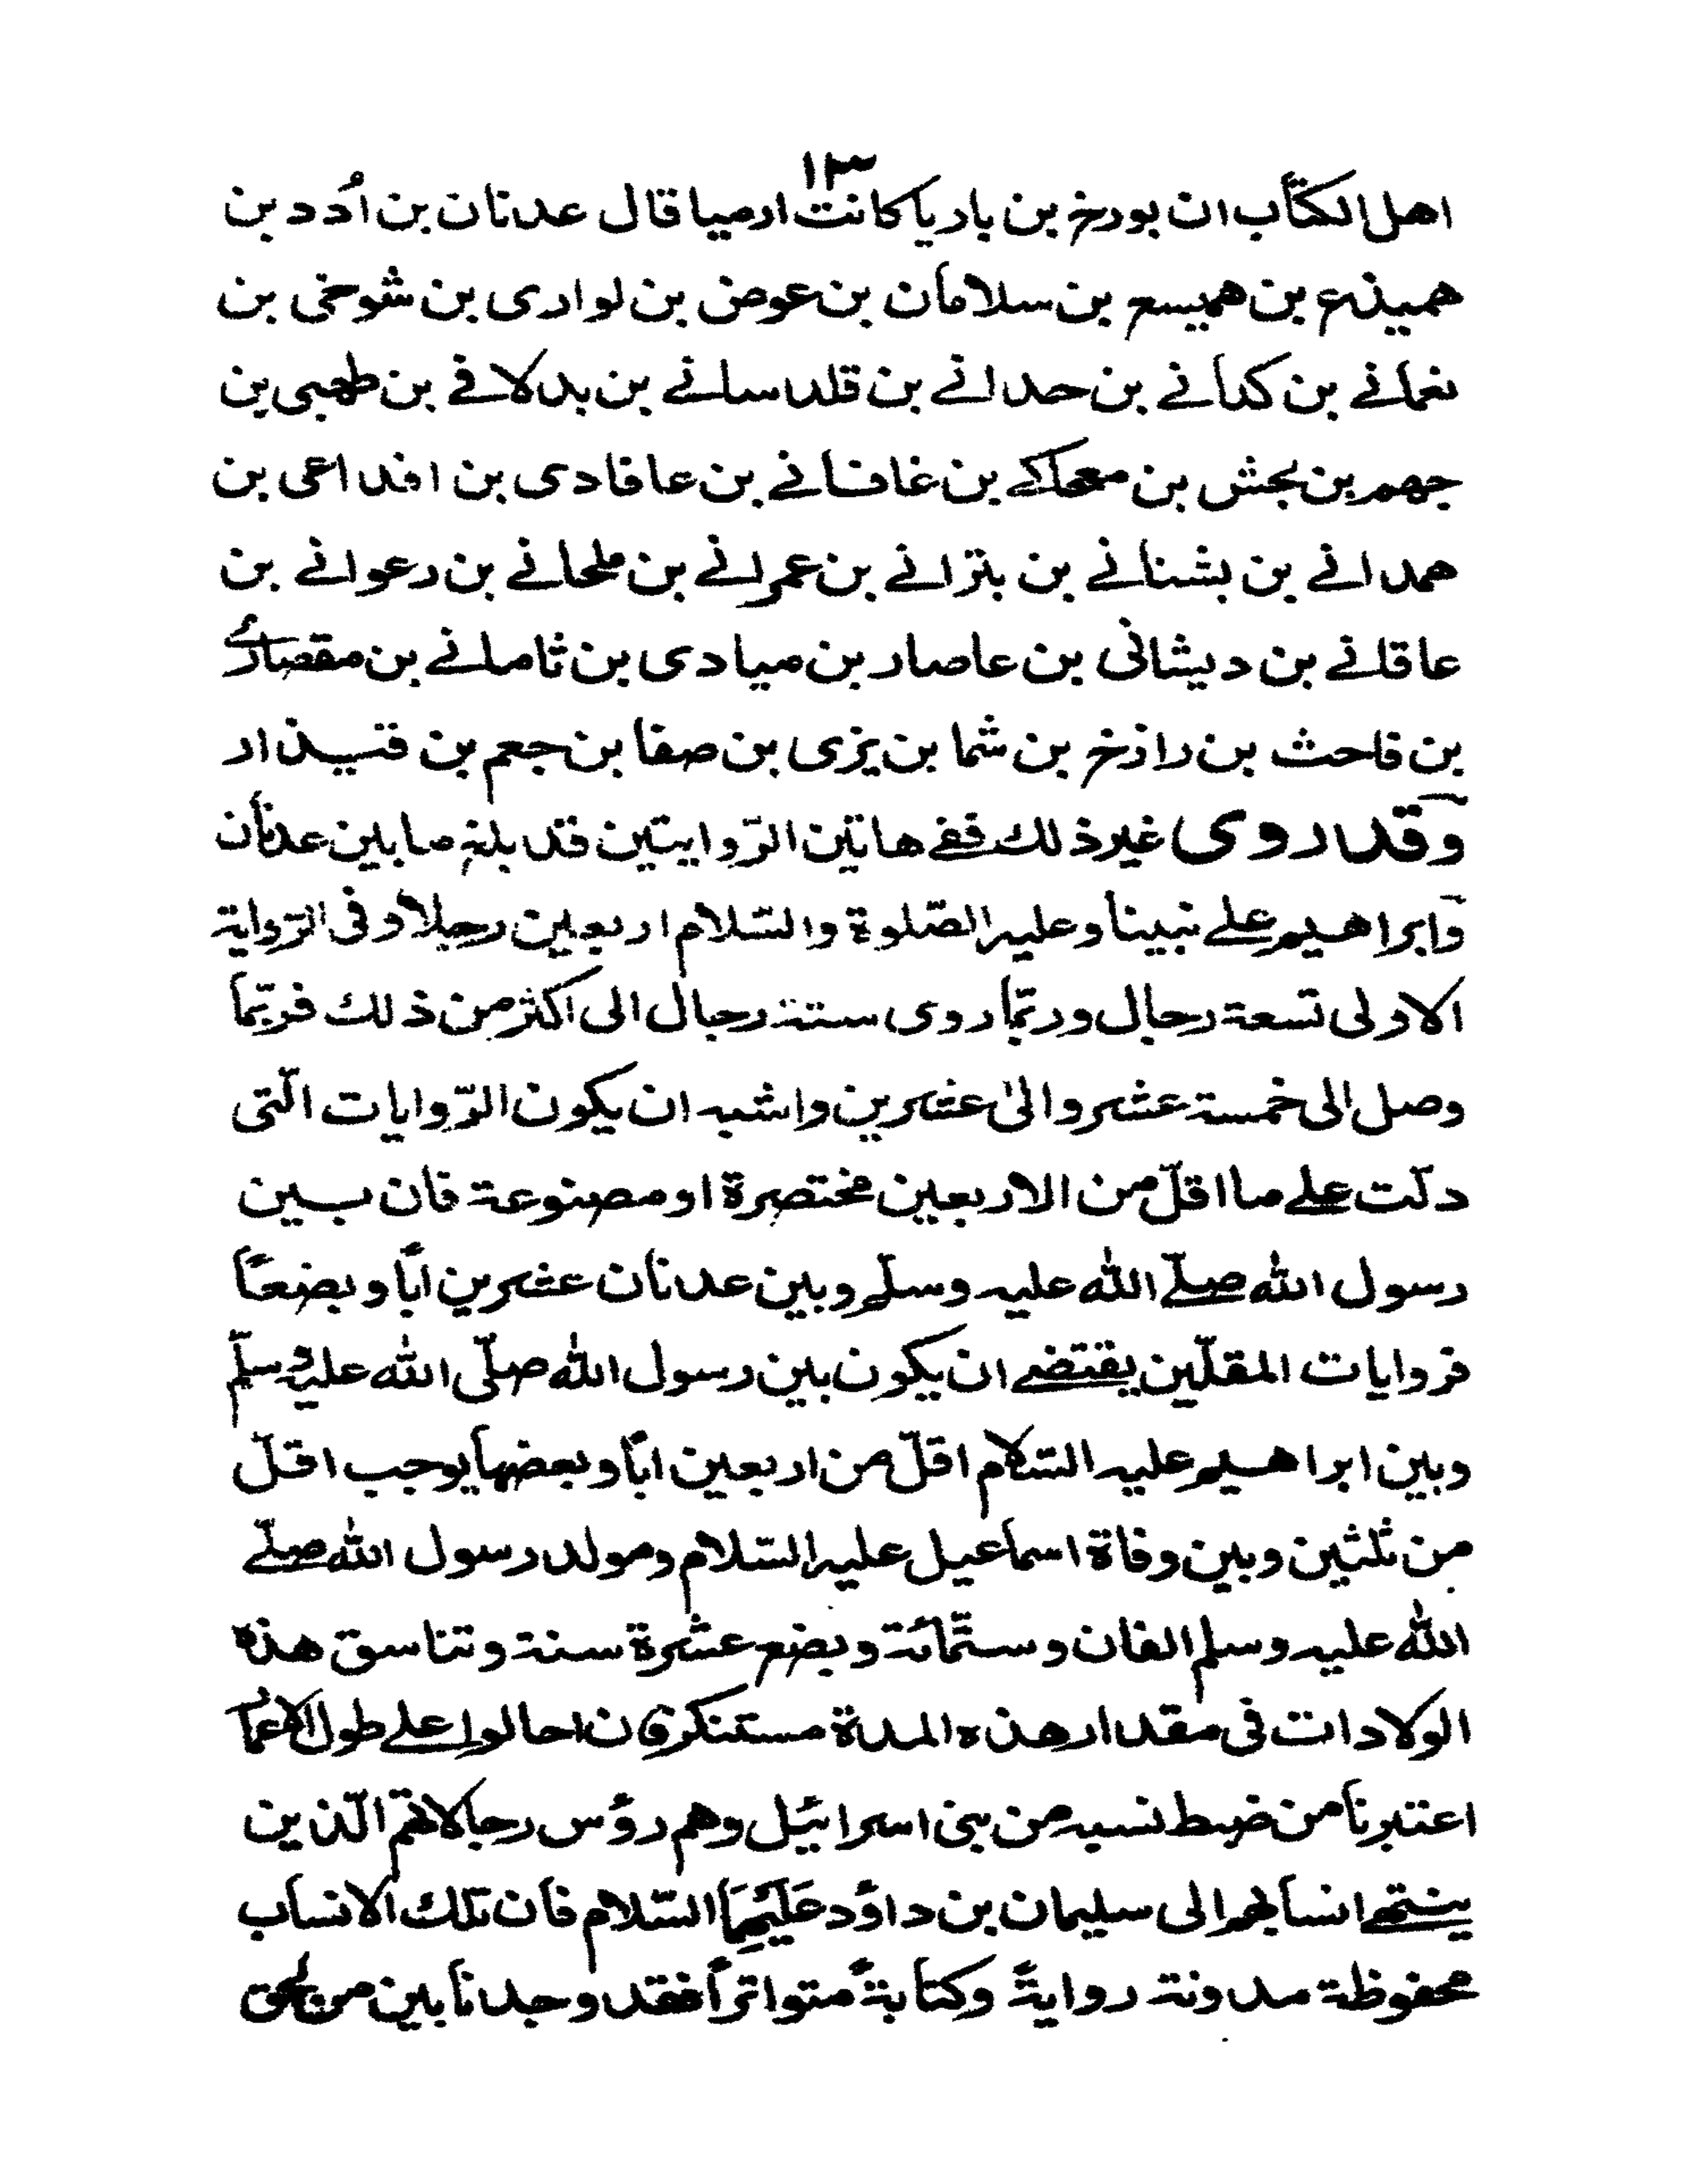 ١٣
اهل الكتاب ان بورخ بن باريا كانت ارميا قال عدنان بن اُدد بن
هميذع بن هميسع بن سلامان بن عوض بن لوادى بن شوخى بن
نعمانے بن كدانے بن حدانے بن قلد سانے بن بدلافے بن طهبى بن
جهم بن بجش بن معحاكے بن غافانے بن عاقادى بن افداعى بن
همدانے بن بشنانے بن بترانے بن عمرانے بن ملحانے بن رعوانے بن
عاقلنے بن ديشانى بن عاصار بن ميادى بن ثاملنے بن مقصارئ
بن فاحث بن رازخ بن شما بن يزى بن صفا بن جعم بن قتيذار
وقد روى غير ذلك ففے هاتين الرّوايتين قد بلغ ما بين عدنان
وابراهيم علے نبينا وعليه الصّلوة والسّلام اربعين رجلا و فى الرّواية
الاولى تسعة رجال وربّما روى ستة رجال الى اكثر من ذلك فربّما
وصل الى خمسة عشر والى عشرين واشبه ان يكون الرّوايات الّتى
دلّت علے ما اقلّ من الاربعين مختصرة او مصنوعة فان بين
رسول الله صلّے الله عليه وسلّم وبين عدنان عشرين اباً و بضعاً
فروايات المقلّين يقتضے ان يكون بين رسول الله صلّى الله عليه وسلّم
وبين ابراهيم عليه السّلام اقلّ من اربعين اباً وبعضها يوجب اقلّ
من ثلثين وبين وفاة اسماعيل عليه السّلام ومولد رسول الله صلّے
الله عليه وسلم الفان وستّمائة وبضع عشرة سنة وتناسق هذه
الولادات فى مقدار هذه المدة مستنكر فان احالوا علے طول الاعمار
اعتبرنا من ضبط نسبه من بنى اسرائيل وهم رؤس رجالاتهم الّذين
ينتهے انسابهم الى سليمان بن داؤد عَلَيْهِمَا السّلام فان تلك الانساب
محفوظة مدونة روايةً وكتابةً متواتراً فقد وجدنا بين من لحق